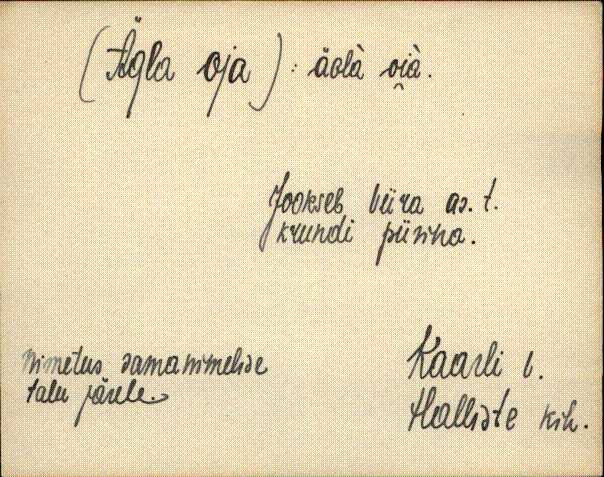 (Ägla oja): äolà oi̯à.
Jookseb Liira as. t.
krundi piirina.
Nimetus samanimelise
talu järele.
Kaarli v.
Halliste kih.